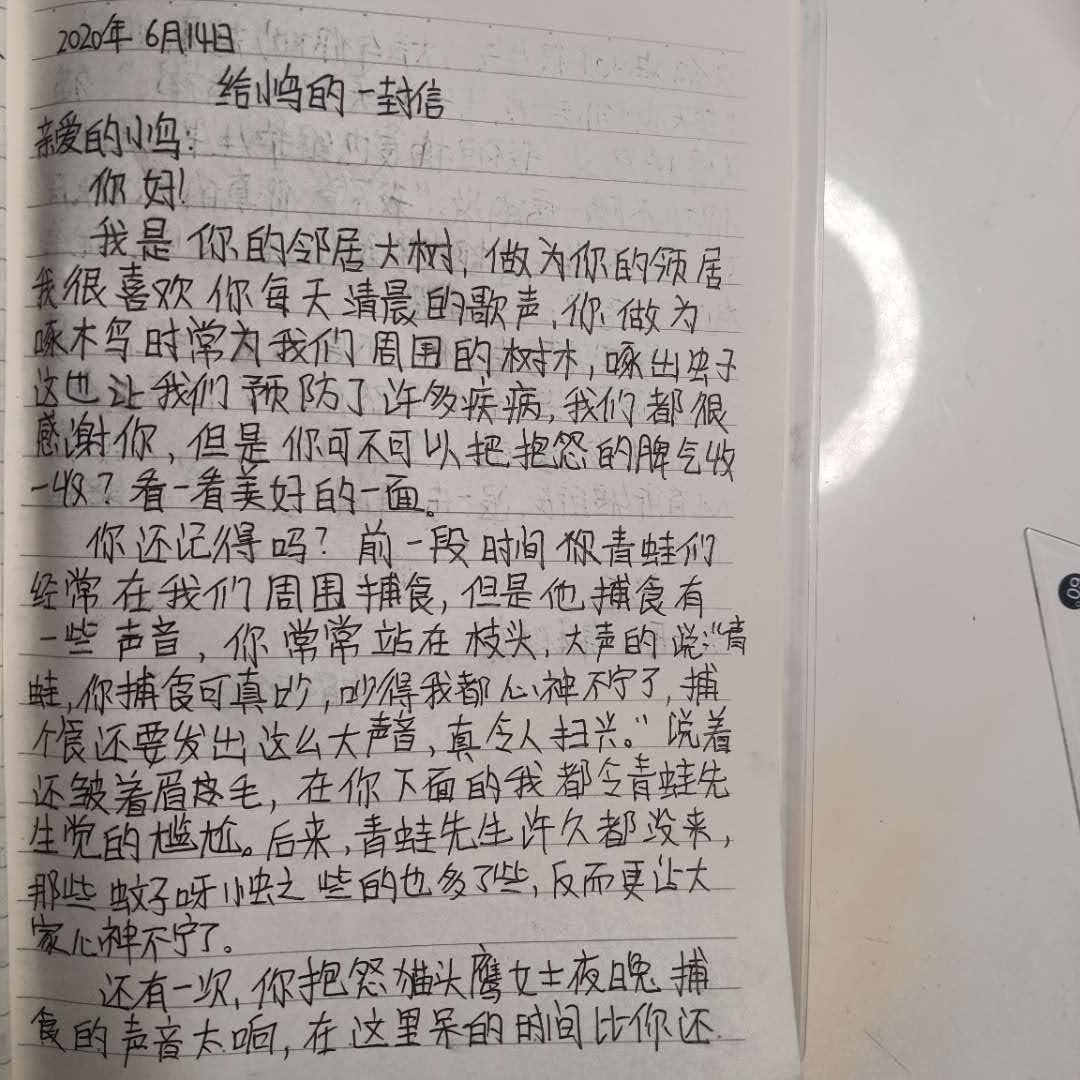 2020年 6月14日
给小鸟的一封信
亲爱的小鸟:
你好!
我是你的邻居大树,做为你的领居
我很喜欢你每天清晨的歌声,你做为
啄木鸟时常为我们周围的树木,啄出虫子
这也让我们预防了许多疾病,我们都很
感谢你,但是你可不可以把抱怨的脾气收
一收?看一看美好的一面。
你还记得吗?前一段时间你青蛙们
经常在我们周围捕食,但是他捕食有
一些声音,你常常站在枝头,大声的说:“青
蛙,你捕食可真吵,吵得我都心神不宁了,捕
个食还要发出这么大声音,真令人扫兴。”说着
还皱着眉毛,在你下面的我都令青蛙先
生觉的尴尬。后来,青蛙先生许久都没来,
那些蚊子呀小虫之些的也多了些,反而更让大
家心神不宁了。
还有一次,你抱怨猫头鹰女士夜晚捕
食的声音太响,在这里呆的时间比你还
60